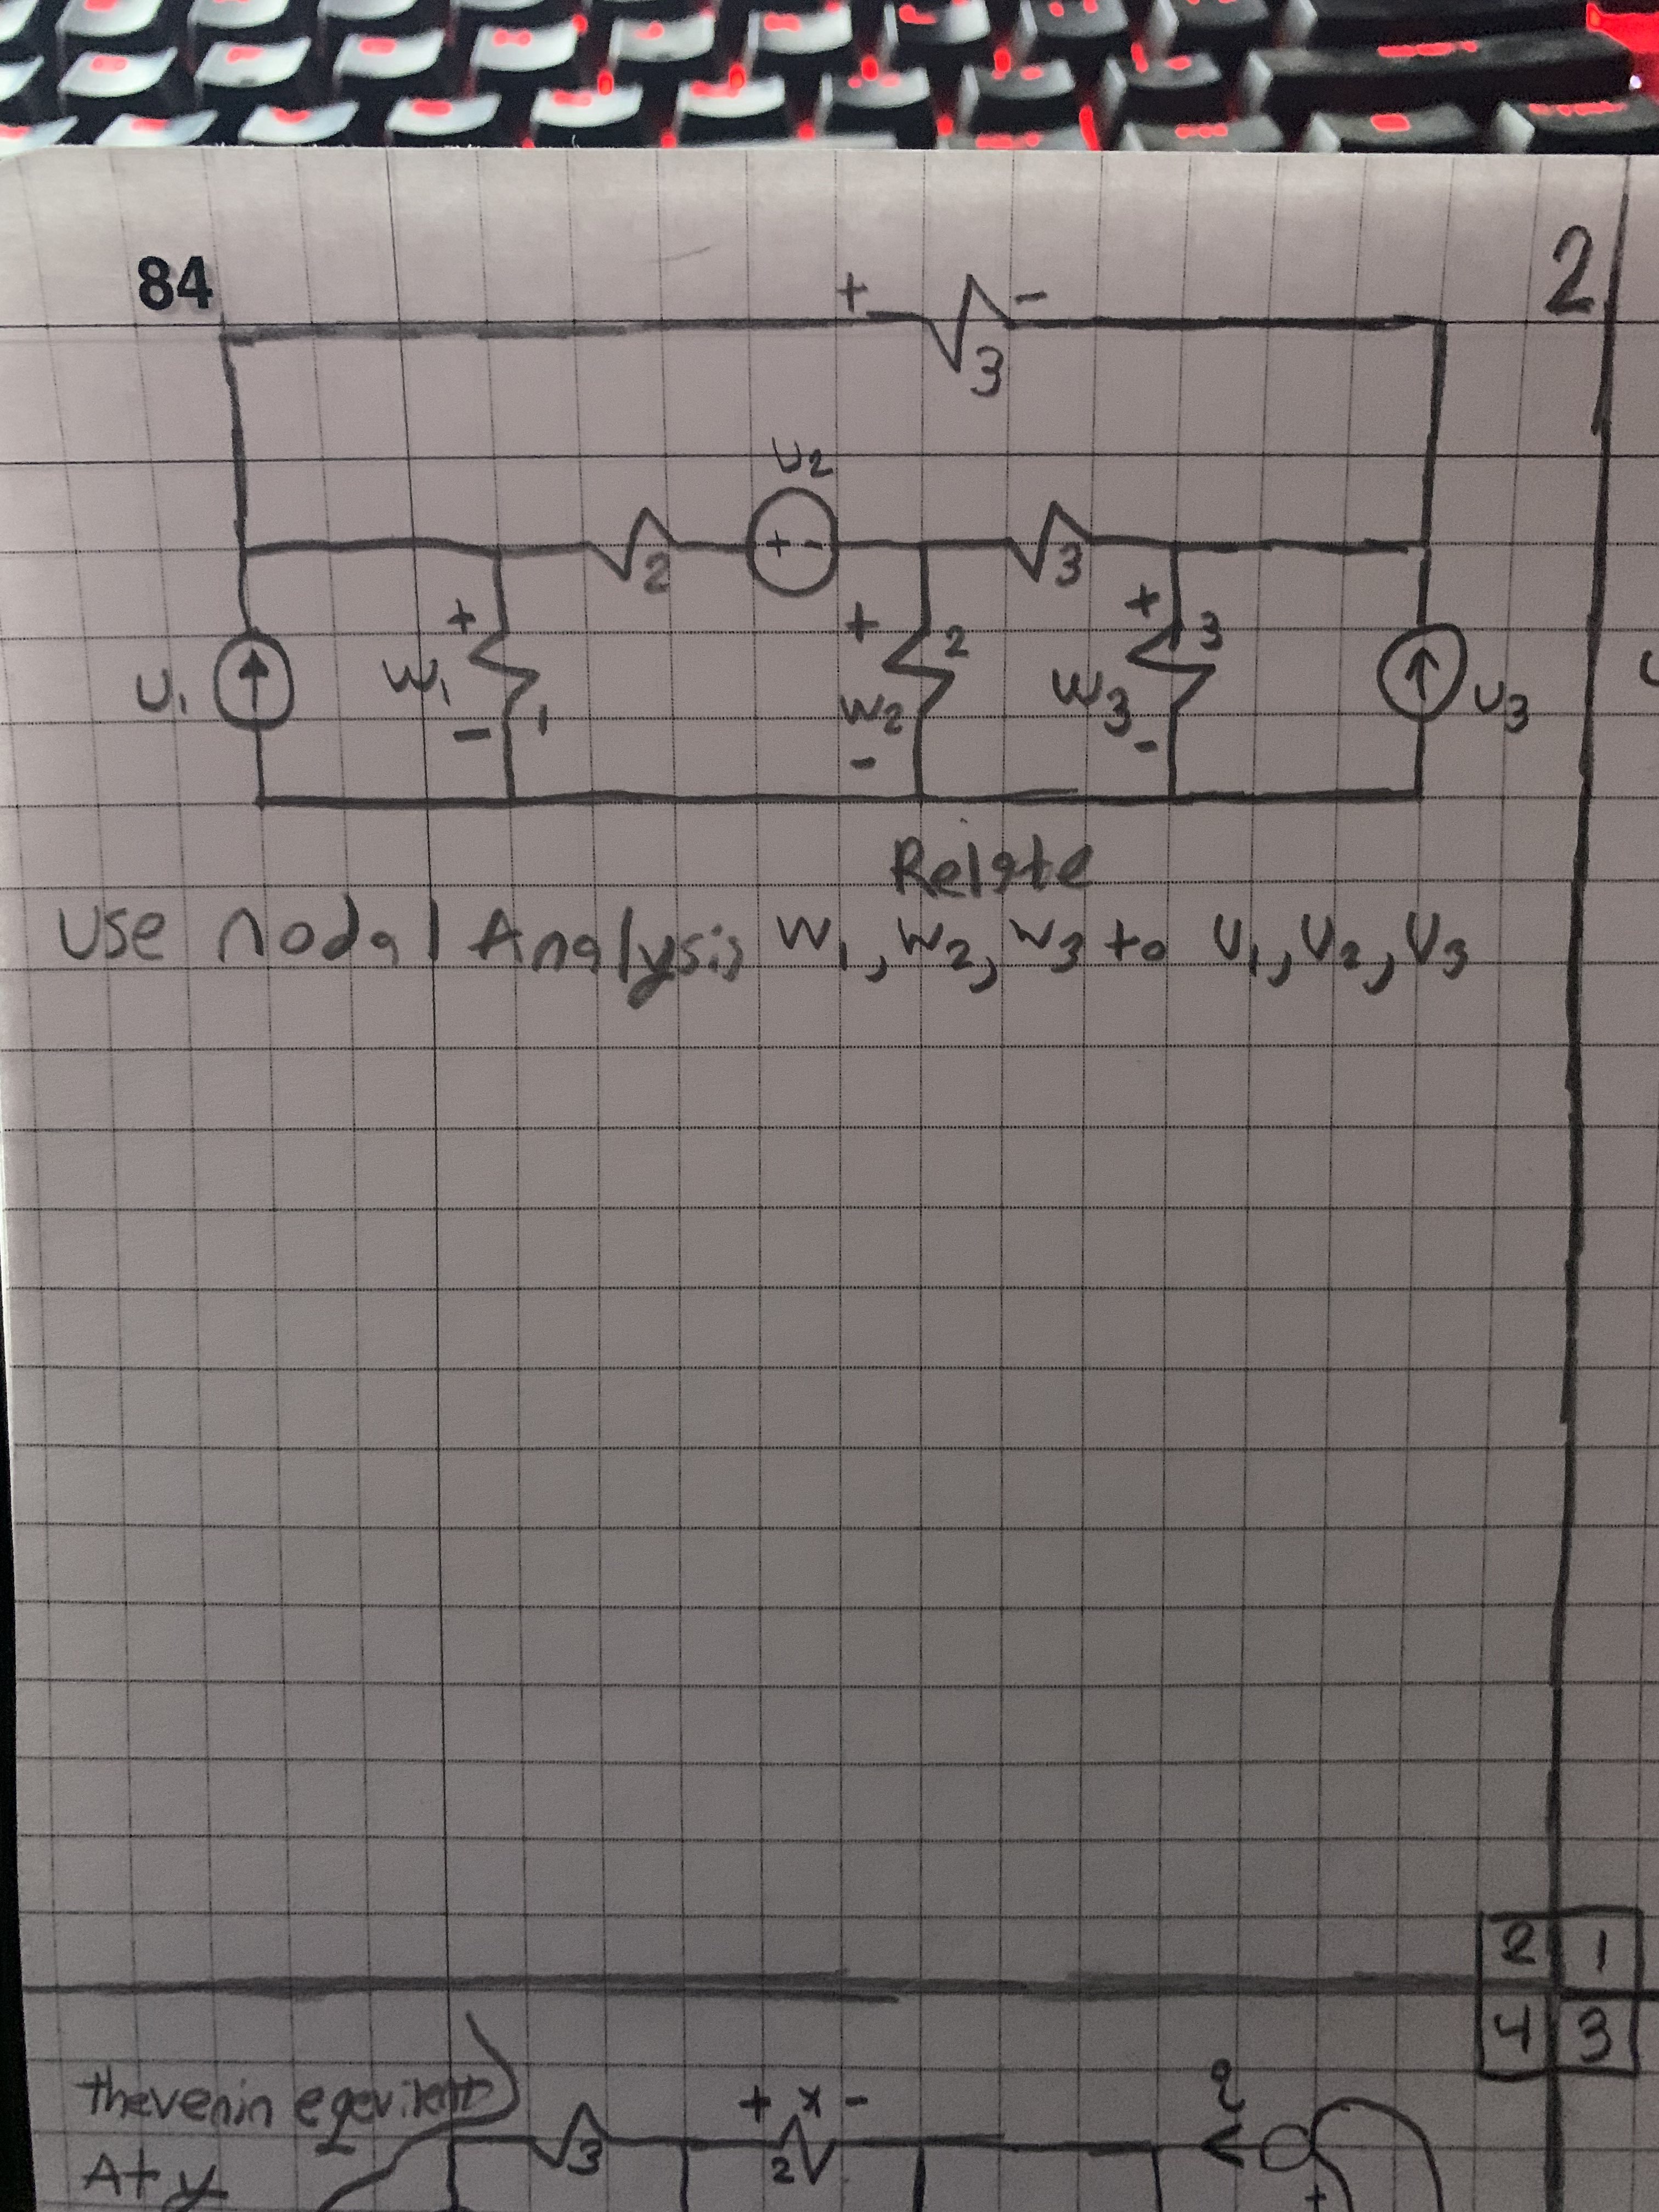 84
2
+ -
3
U2
2
+ -
3
U1
+
W1
-
1
+
2
W2
-
+
3
W3
-
U3
Relate
Use nodal Analysis W1, W2, W3 to U1, U2, U3
2 1
4 3
thevenin
At y
3
+ x -
2
q
+